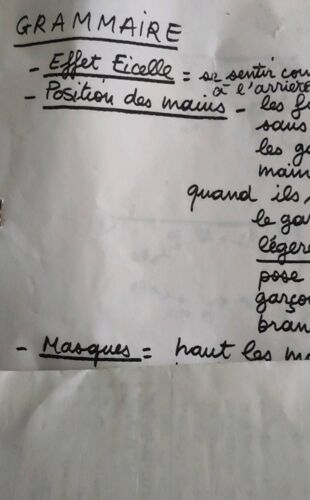 GRAMMAIRE
- Effet Ficelle = se sentir
à l'arrière
- Position des mains - les
sans
les
main
quand ils
le
légère
pose
garço
bran
- Masques = haut les